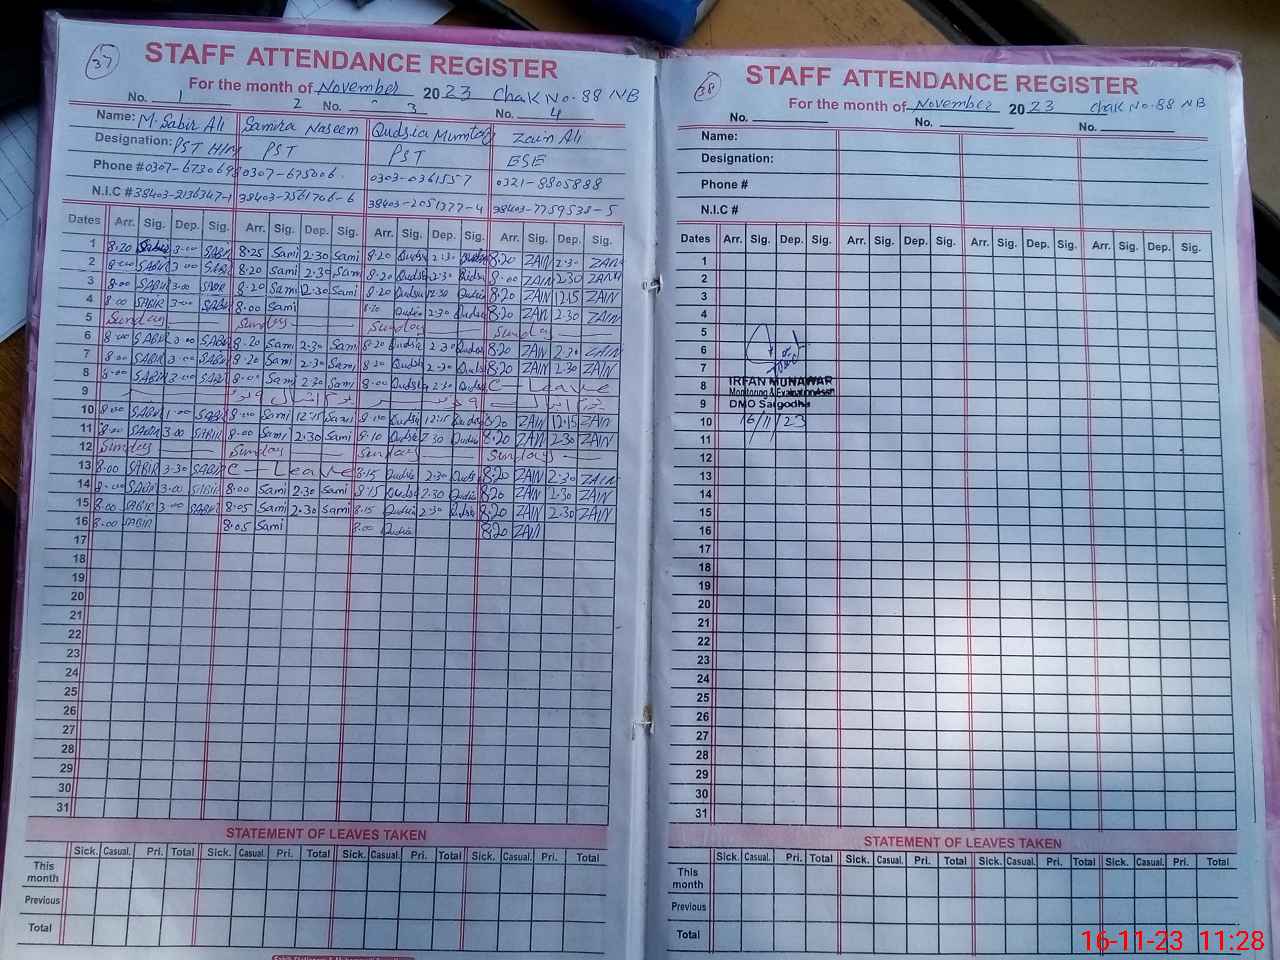 37
STAFF ATTENDANCE REGISTER
For the month of November 2023 Chak No. 88 NB
No. 1 2 No. 3 No. 4
Name: M. Sabir Ali Samira Naseem Qudsia Mumtaz Zain Ali
Designation: PST H/M PST PST ESE
Phone # 0307-673069 0307-675006 0303-0361557 0321-8805888
N.I.C # 38403-2136347-1 38403-7561706-6 38403-2051377-4 38403-7759538-5
Dates Arr. Sig. Dep. Sig. Arr. Sig. Dep. Sig. Arr. Sig. Dep. Sig. Arr. Sig. Dep. Sig.
1 8.20 Sabir 3.00 SABIR 8.25 Sami 2.30 Sami 8.20 Qudsia 2.30 Qudsia 8.20 ZAIN 2.30 ZAIN
2 8.00 SABIR 3.00 SABIR 8.20 Sami 2.30 Sami 8.20 Qudsia 2.30 Qudsia 8.00 ZAIN 2.30 ZAIN
3 8.00 SABIR 3.00 SABIR 8.20 Sami 12.30 Sami 8.20 Qudsia 12.30 Qudsia 8.20 ZAIN 12.15 ZAIN
4 8.00 SABIR 3.00 SABIR 8.00 Sami 8.20 Qudsia 2.30 Qudsia 8.20 ZAIN 2.30 ZAIN
5 Sunday Sunday Sunday Sunday
6 8.00 SABIR 3.00 SABIR 8.20 Sami 2.30 Sami 8.20 Qudsia 2.30 Qudsia 8.20 ZAIN 2.30 ZAIN
7 8.00 SABIR 3.00 SABIR 8.20 Sami 2.30 Sami 8.20 Qudsia 2.30 Qudsia 8.20 ZAIN 2.30 ZAIN
8 8.00 SABIR 3.00 SABIR 8.00 Sami 2.30 Sami 8.00 Qudsia 2.30 Qudsia C - Leave
9
10 8.00 SABIR 1.00 SABIR 8.00 Sami 12.15 Sami 8.10 Qudsia 12.15 Qudsia 8.20 ZAIN 12.15 ZAIN
11 8.00 SABIR 3.00 SABIR 8.00 Sami 2.30 Sami 8.10 Qudsia 2.30 Qudsia 8.20 ZAIN 2.30 ZAIN
12 Sunday Sunday Sunday Sunday
13 8.00 SABIR 3.30 SABIR C - Leave 8.15 Qudsia 2.30 Qudsia 8.20 ZAIN 2.30 ZAIN
14 8.00 SABIR 3.00 SABIR 8.00 Sami 2.30 Sami 8.15 Qudsia 2.30 Qudsia 8.20 ZAIN 2.30 ZAIN
15 8.00 SABIR 3.00 SABIR 8.05 Sami 2.30 Sami 8.15 Qudsia 2.30 Qudsia 8.20 ZAIN 2.30 ZAIN
16 8.00 SABIR 8.05 Sami 8.00 Qudsia 8.20 ZAIN
17
18
19
20
21
22
23
24
25
26
27
28
29
30
31
STATEMENT OF LEAVES TAKEN
Sick. Casual. Pri. Total Sick. Casual. Pri. Total Sick. Casual. Pri. Total Sick. Casual. Pri. Total
This month
Previous
Total
38
STAFF ATTENDANCE REGISTER
For the month of November 2023 Chak No. 88 NB
No. No. No.
Name:
Designation:
Phone #
N.I.C #
Dates Arr. Sig. Dep. Sig. Arr. Sig. Dep. Sig. Arr. Sig. Dep. Sig. Arr. Sig. Dep. Sig.
1
2
3
4
5
6
7
8 IRFAN MUNAWAR
Monitoring &
9 DMO Sargodha
10 16/11/23
11
12
13
14
15
16
17
18
19
20
21
22
23
24
25
26
27
28
29
30
31
STATEMENT OF LEAVES TAKEN
Sick. Casual. Pri. Total Sick. Casual. Pri. Total Sick. Casual. Pri. Total Sick. Casual. Pri. Total
This month
Previous
Total
16-11-23 11:28